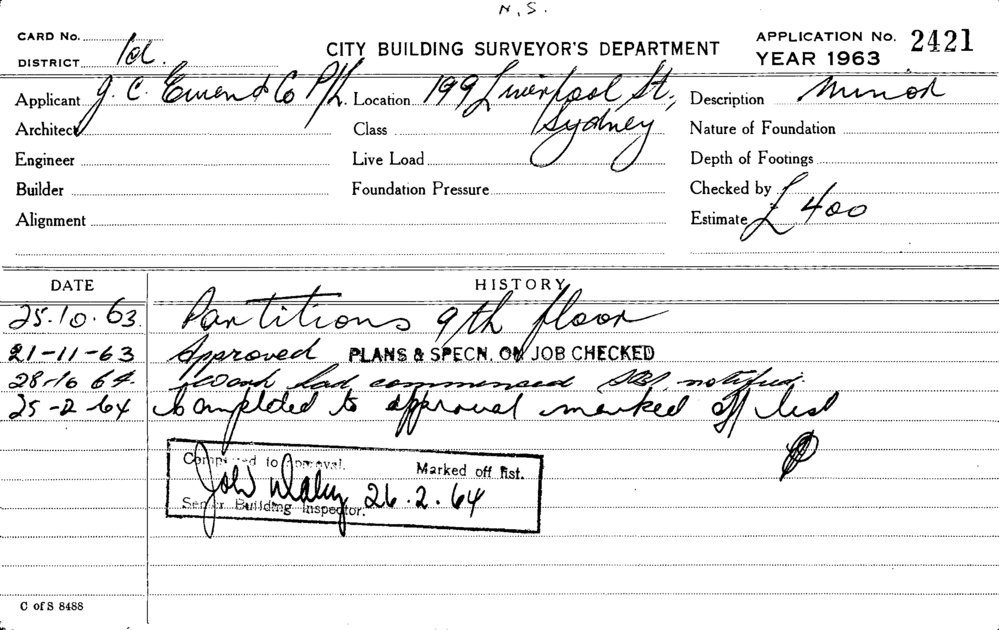 N.S.
CARD No.
DISTRICT 1d.
CITY BUILDING SURVEYOR'S DEPARTMENT
APPLICATION No. 2421
YEAR 1963
Applicant J. C. Ewen & Co P/L. Location 199 Liverpool St., Description Minor
Architect Class Sydney Nature of Foundation
Engineer Live Load Depth of Footings
Builder Foundation Pressure Checked by
Alignment Estimate £400
DATE HISTORY
25.10.63. Partitions 9th floor
21-11-63 Approved PLANS & SPECN. ON JOB CHECKED
28-10 64. Work had commenced notified.
25-2-64 Completed to approval marked off list
Completed to Approval. Marked off list.
26.2.64
Senior Building Inspector.
C of S 8488